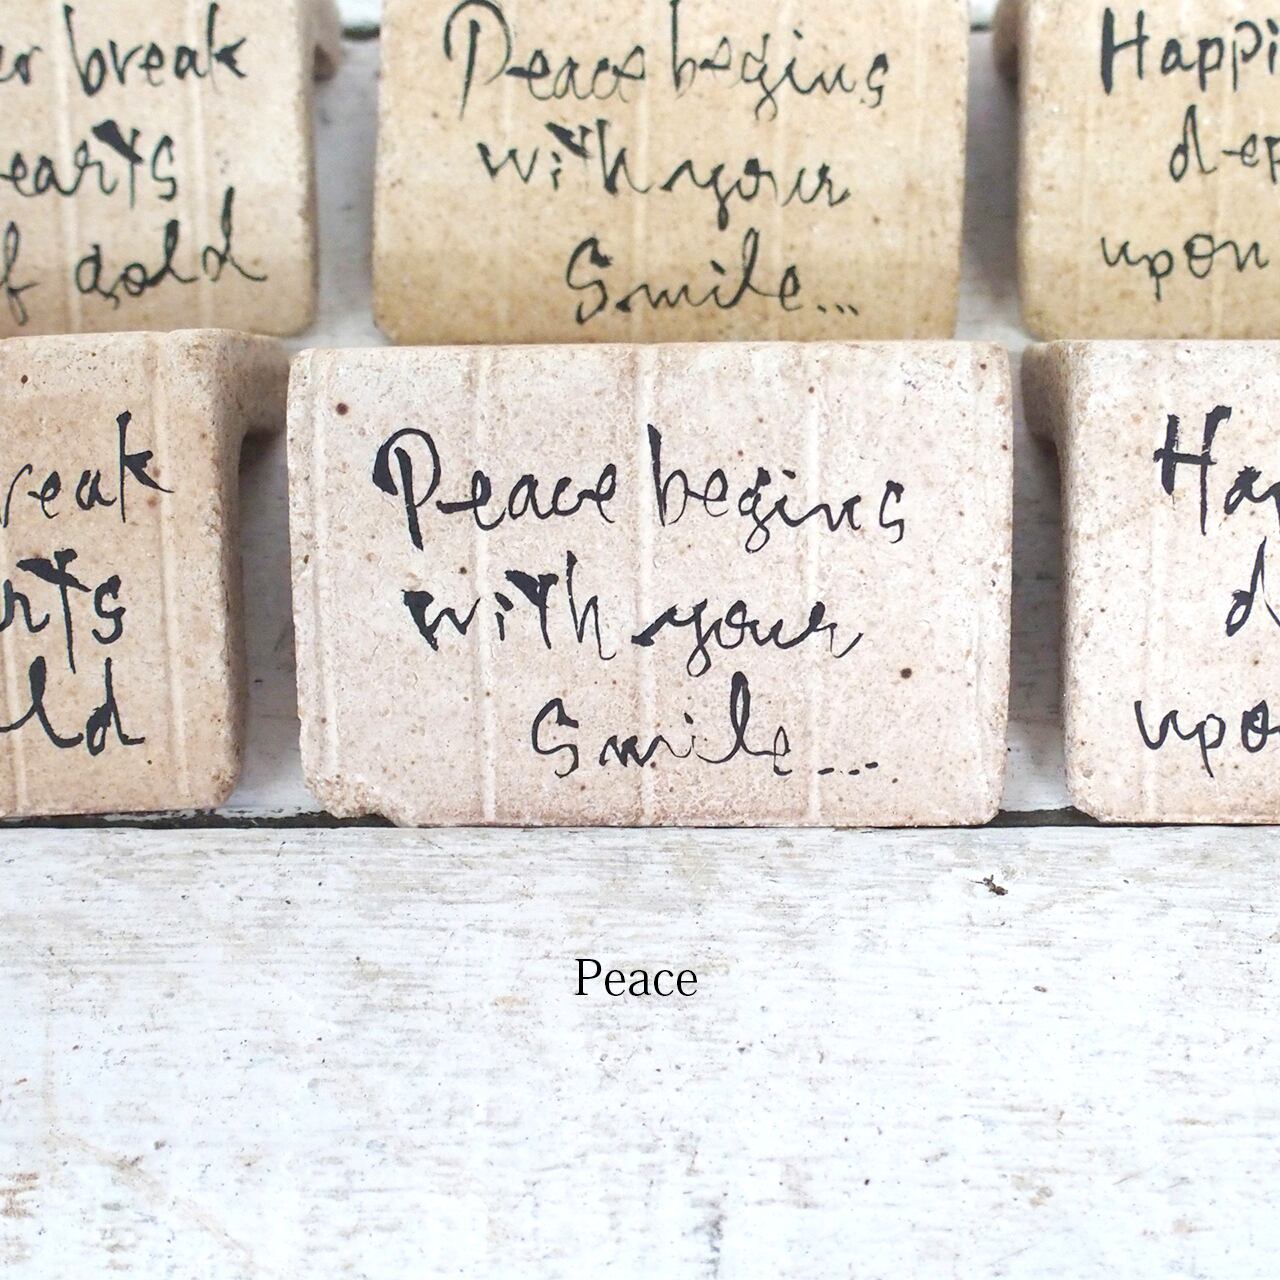 er break
earts
f gold
Peace begins
with your
Smile...
Happi
dep
upon
reak
rts
ld
Peace begins
with your
Smile...
Hap
d
upo
Peace